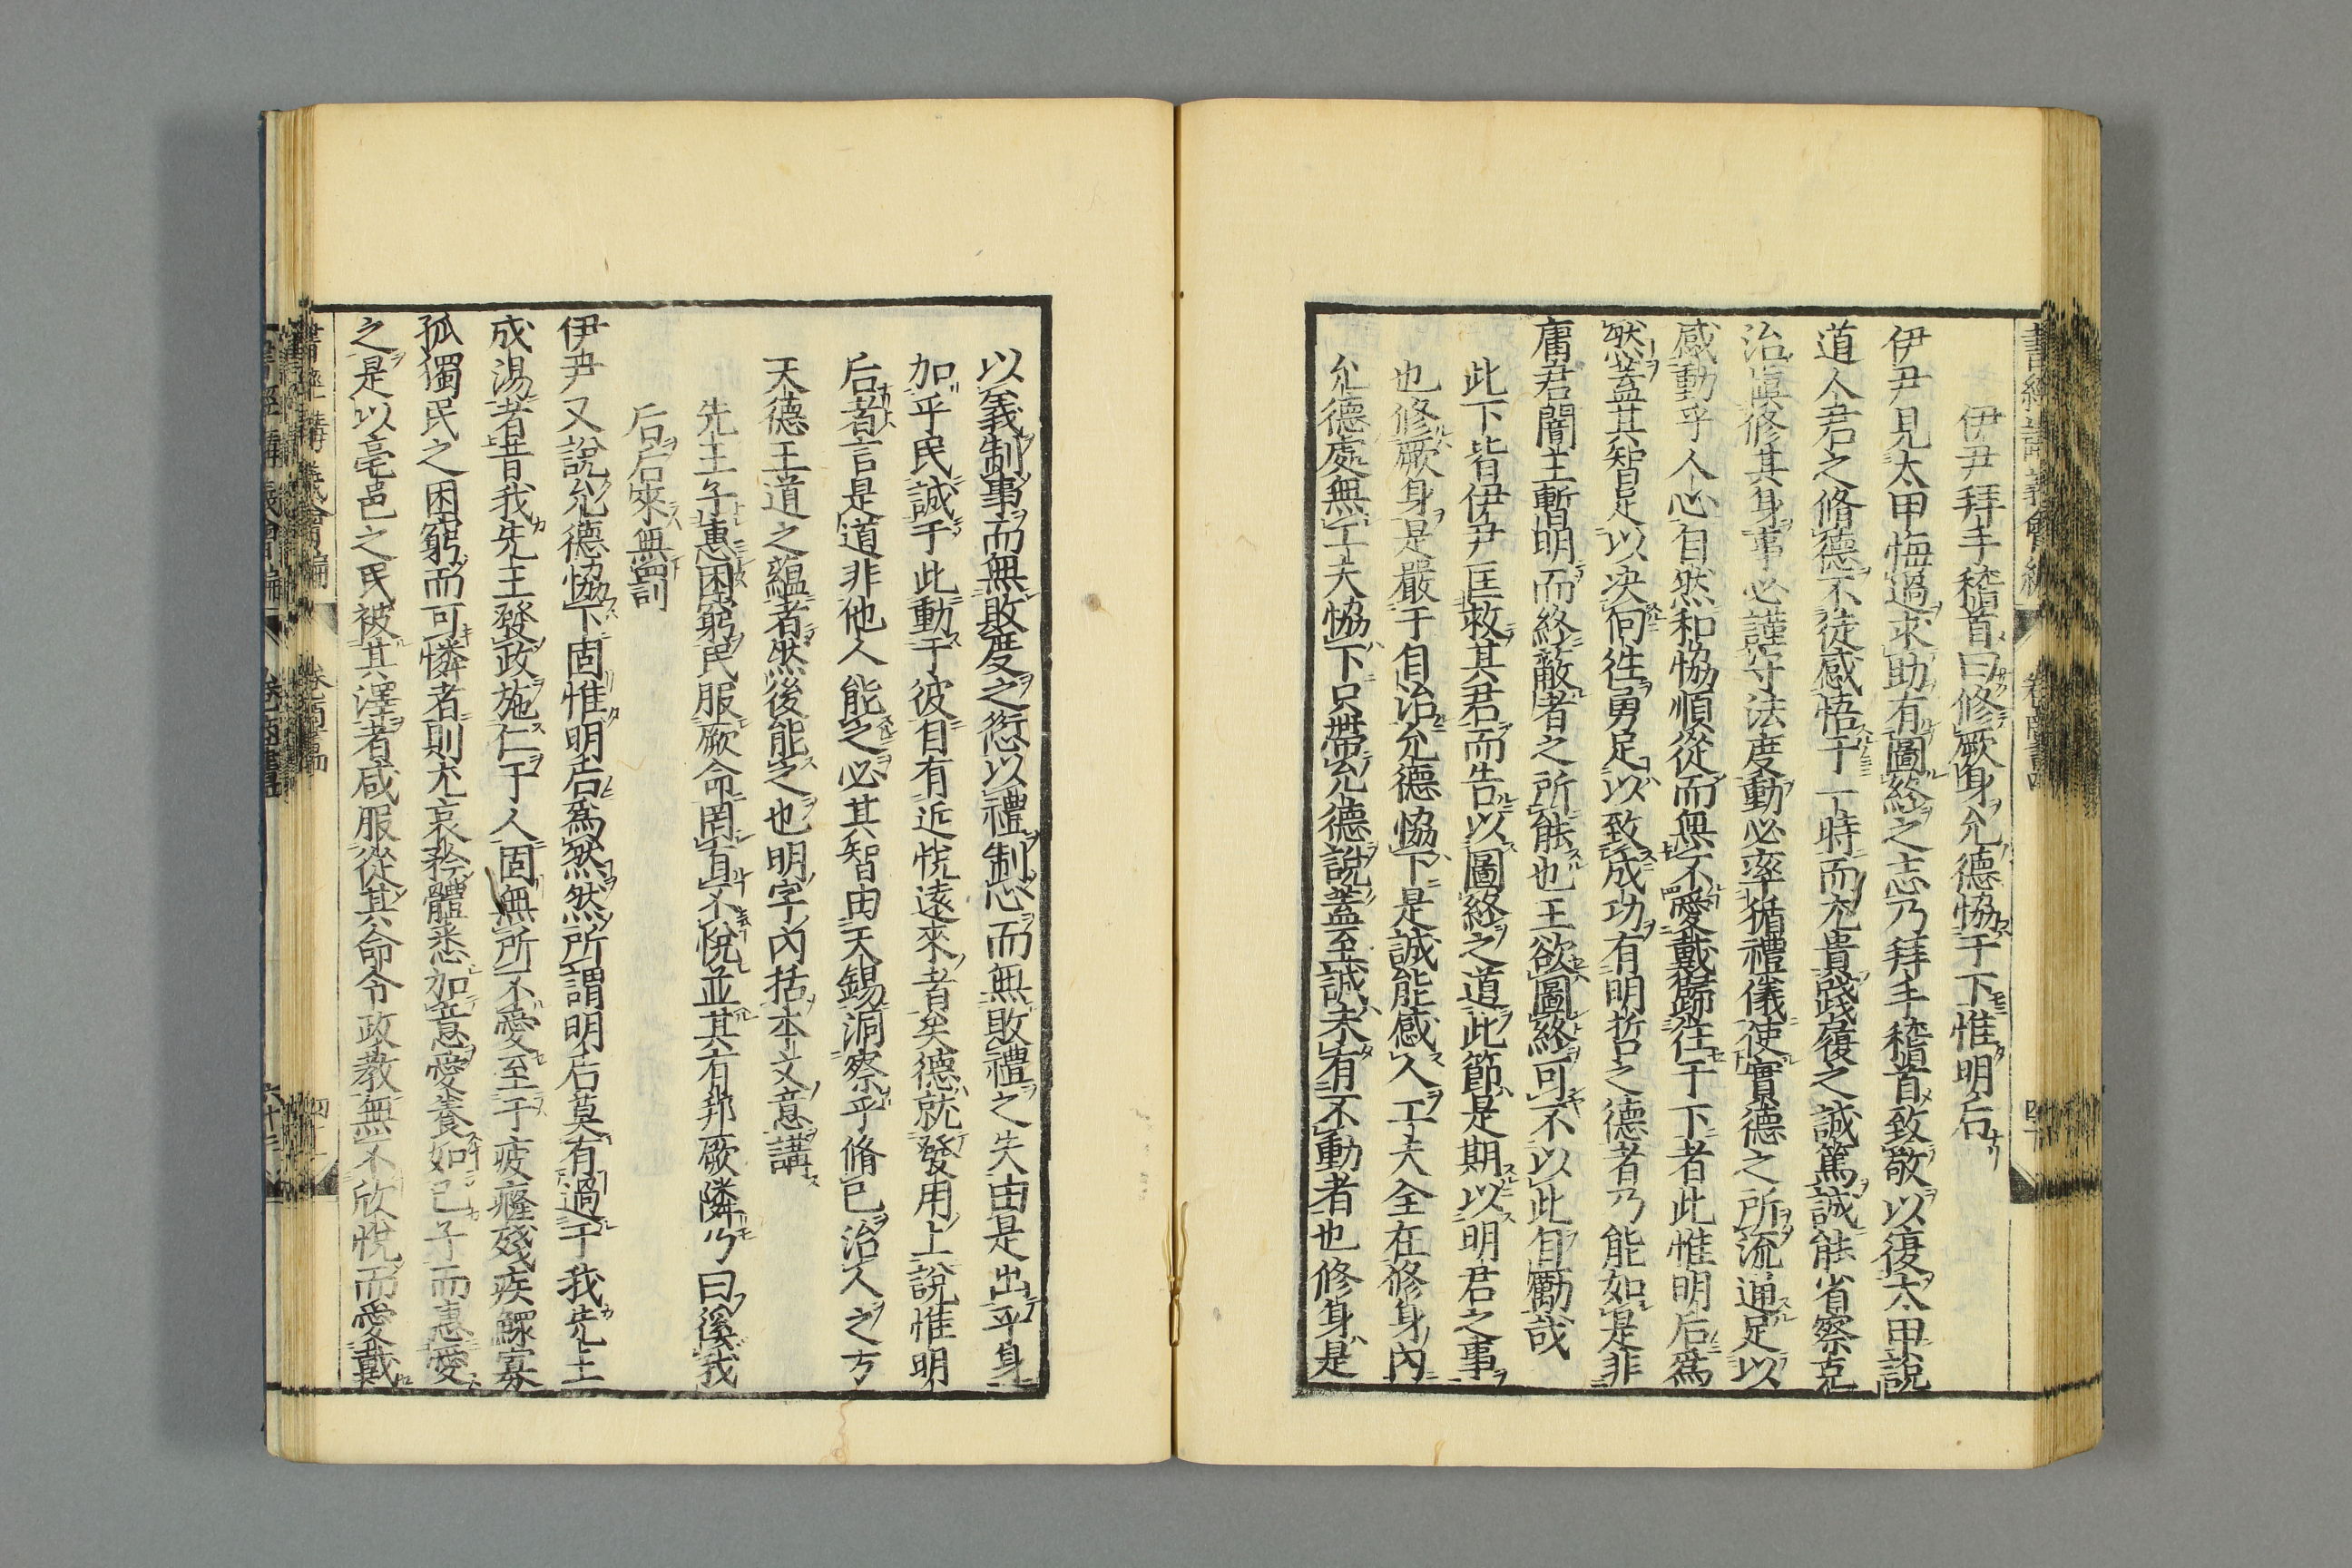 伊尹拜手稽首曰修厥身允德恊于下惟明后
伊尹見太甲悔過求助有圖終之志乃拜手稽首致敬以復太甲說
道人君之脩德不徒感悟于一時而尤貴踐履之誠篤誠能省察克
治眞修其身事必謹守法度動必率循禮儀使實德之所流通足以
感動乎人心自然和恊順從而無不愛戴歸往于下者此惟明后爲
然蓋其智足以决向徃勇足以致成功有明哲之德者乃能如是非
庸君闇主暫明而終蔽者之所能也王欲圖終可不以此自勵哉
此下皆伊尹匡救其君而告以圖終之道此節是期以明君之事
也修厥身是嚴于自治允德恊下是誠能感人工夫全在修身內
允德處無工夫恊下只帶允德說蓋至誠未有不動者也修身是
以義制事而無敗度之愆以禮制心而無敗禮之失由是出乎身
加乎民誠于此動于彼自有近悅遠來者矣德就發用上說惟明
后者言是道非他人能之必其智由天錫洞察乎脩已治人之方
天德王道之蘊者然後能之也明字內括本文意講
先王子惠困窮民服厥命罔有不悅並其有邦厥隣乃曰徯我
后后來無罰
伊尹又說允德恊下固惟明后爲然然所謂明后莫有過于我先王
成湯者昔我先王發政施仁于人固無所不愛至于疲癃殘疾鰥寡
孤獨民之困窮而可憐者則尤哀矜體悉加意愛養如已子而惠愛
之是以亳邑之民被其澤者咸服從其命令政教無不欣悅而愛戴